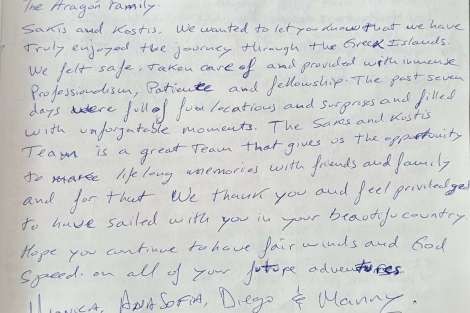 The Aragon Family.
Sakis and Kostis. We wanted to let you know that we have
truly enjoyed the journey through the Greek Islands.
We felt safe. Taken care of and provided with immense
Professionalism, Patience and fellowship. The past seven
days were full of fun locations and surprises and filled
with unforgatable moments. The Sakis and Kostis
Team is a great Team that gives us the opportunity
to make life long memories with friends and family
and for that We thank you and feel priviledged
to have sailed with you in your beautiful country
Hope you continue to have fair winds and God
Speed. on all of your future adventures
ANASOFIA, Diego & Manny.